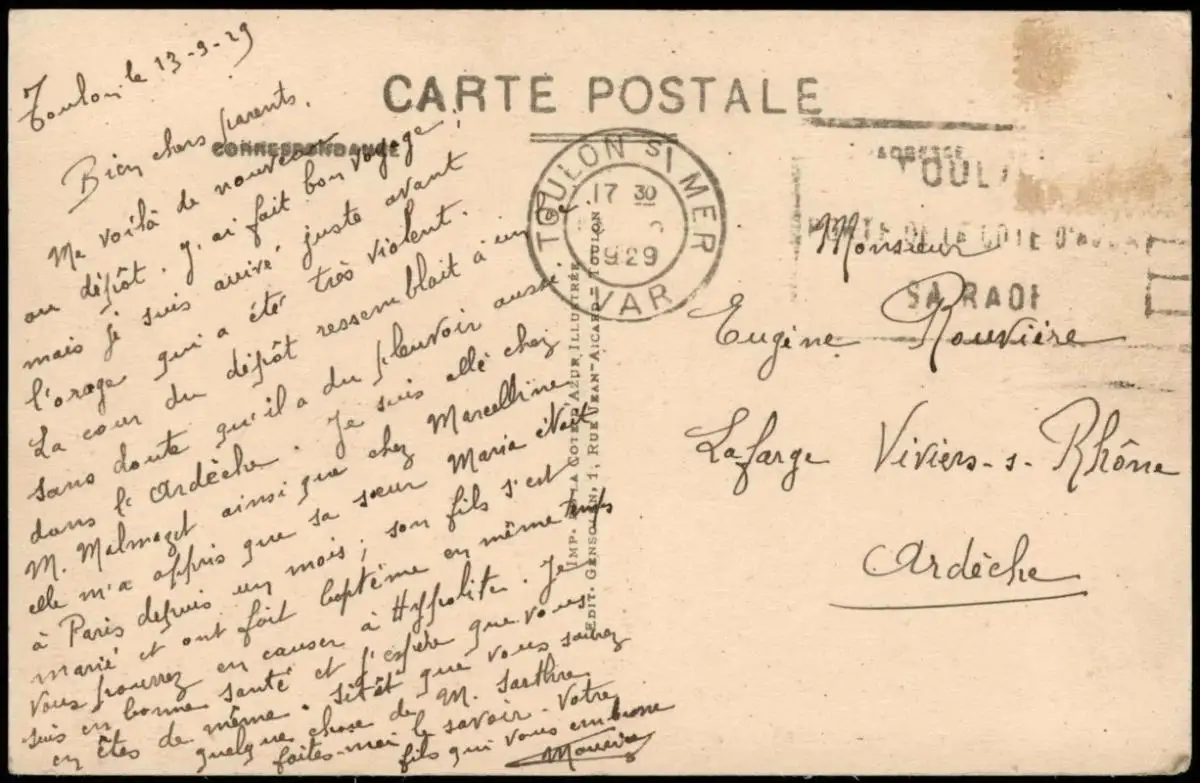 Toulon, le 13-9-29
CARTE POSTALE
CORRESPONDANCE
ADRESSE
Bien chers parents,
Me voilà de nouveau
au dépôt. J'ai fait bon voyage,
mais je suis arrivé juste avant
l'orage qui a été très violent.
La cour du dépôt ressemblait à un
sans doute qu'il a du pleuvoir aussi
dans l'Ardèche. Je suis allé chez
M. Malmazet ainsi que chez Marcelline
elle m'a appris que sa sœur Maria était
à Paris depuis un mois, son fils s'est
marié et ont fait baptême en même temps
vous pourrez en causer à Hyppolite. Je
suis en bonne santé et j'espère que vous
en êtes de même. Sitôt que vous saurez
quelque chose de M. Sarthre
faites-moi le savoir. Votre
fils qui vous embrasse
TOULON S/MER
17 30
1929
VAR
TOUL
PORTE DE LA COTE D'AZUR
SA RADE
IMP. DE LA COTE D'AZUR ILLUSTRÉE
EDIT. GENSOLLEN, 1, RUE JEAN-AICARD - TOULON
Monsieur
Eugène Rouvière
Lafarge Viviers-s-Rhône
Ardèche